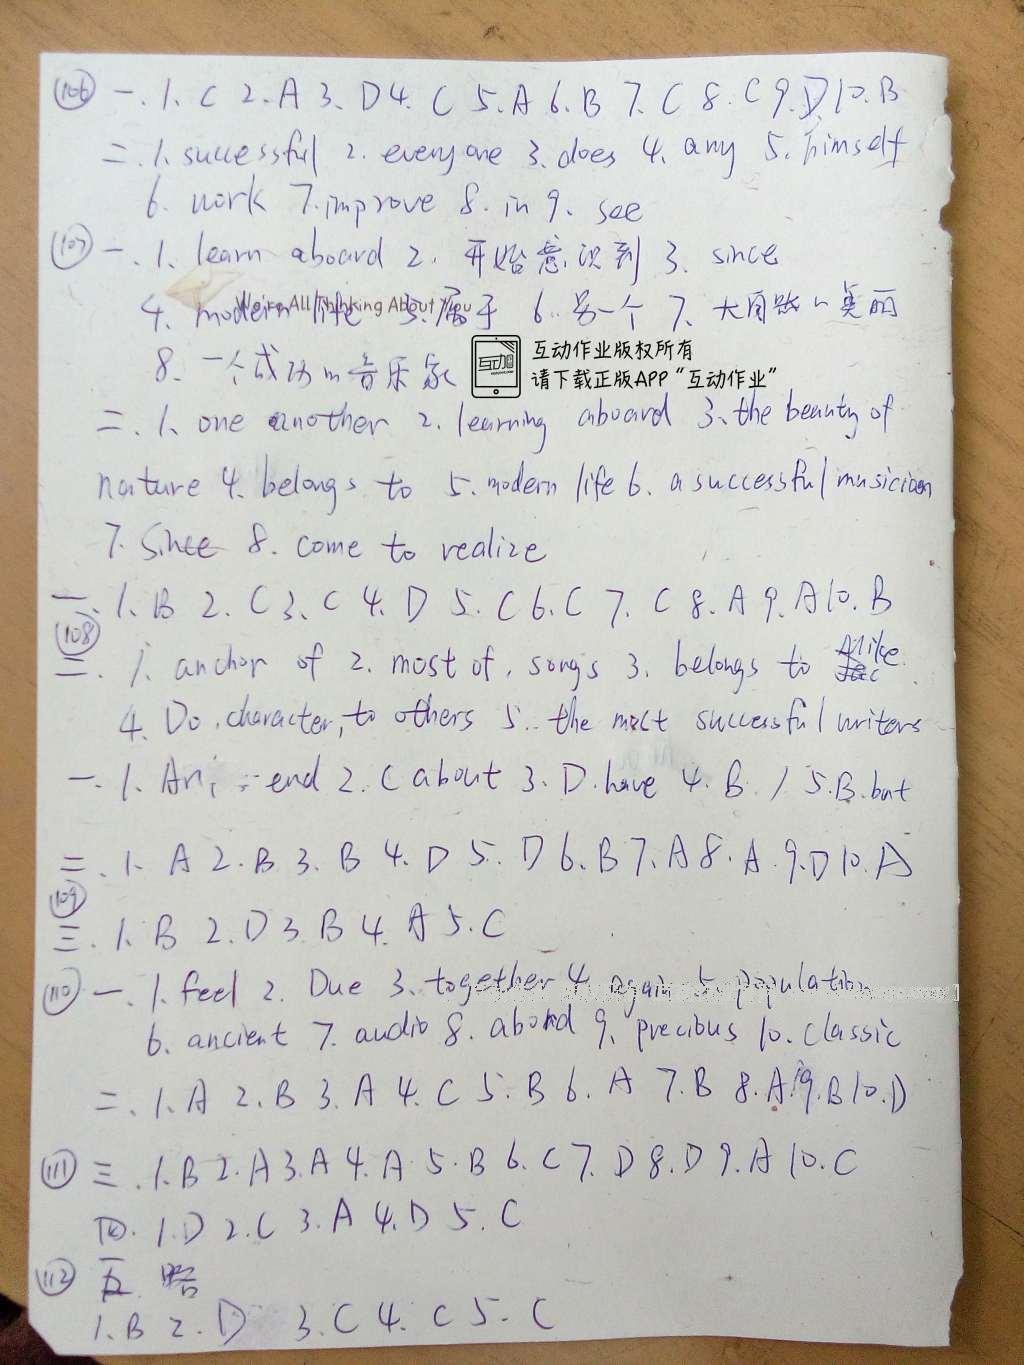 106 一. 1. C 2. A 3. D 4. C 5. A 6. B 7. C 8. C 9. D 10. B
二. 1. successful 2. everyone 3. does 4. any 5. himself
6. work 7. improve 8. in 9. see
107 一. 1. learn aboard 2. 开始意识到 3. since
We're All Thinking About You
4. modern life 5. 属于 6. 另一个 7. 大自然的美丽
8. 一个成功的音乐家
互动
互动作业版权所有
请下载正版APP“互动作业”
二. 1. one another 2. learning aboard 3. the beauty of
nature 4. belongs to 5. modern life 6. a successful musician
7. Since 8. come to realize
一. 1. B 2. C 3. C 4. D 5. C 6. C 7. C 8. A 9. A 10. B
108
二. 1. anchor of 2. most of, songs 3. belongs to Alice.
4. Do, character, to others 5. the most successful writers
一. 1. A end 2. C about 3. D. have 4. B / 5. B. but
二. 1. A 2. B 3. B 4. D 5. D 6. B 7. A 8. A 9. D 10. A
109
三. 1. B 2. D 3. B 4. A 5. C
110 一. 1. feel 2. Due 3. together 4. again 5. population
6. ancient 7. audio 8. abord 9. precious 10. classic
二. 1. A 2. B 3. A 4. C 5. B 6. A 7. B 8. A 9. B 10. D
111 三. 1. B 2. A 3. A 4. A 5. B 6. C 7. D 8. D 9. A 10. C
四. 1. D 2. C 3. A 4. D 5. C
112 五. 略
1. B 2. D 3. C 4. C 5. C